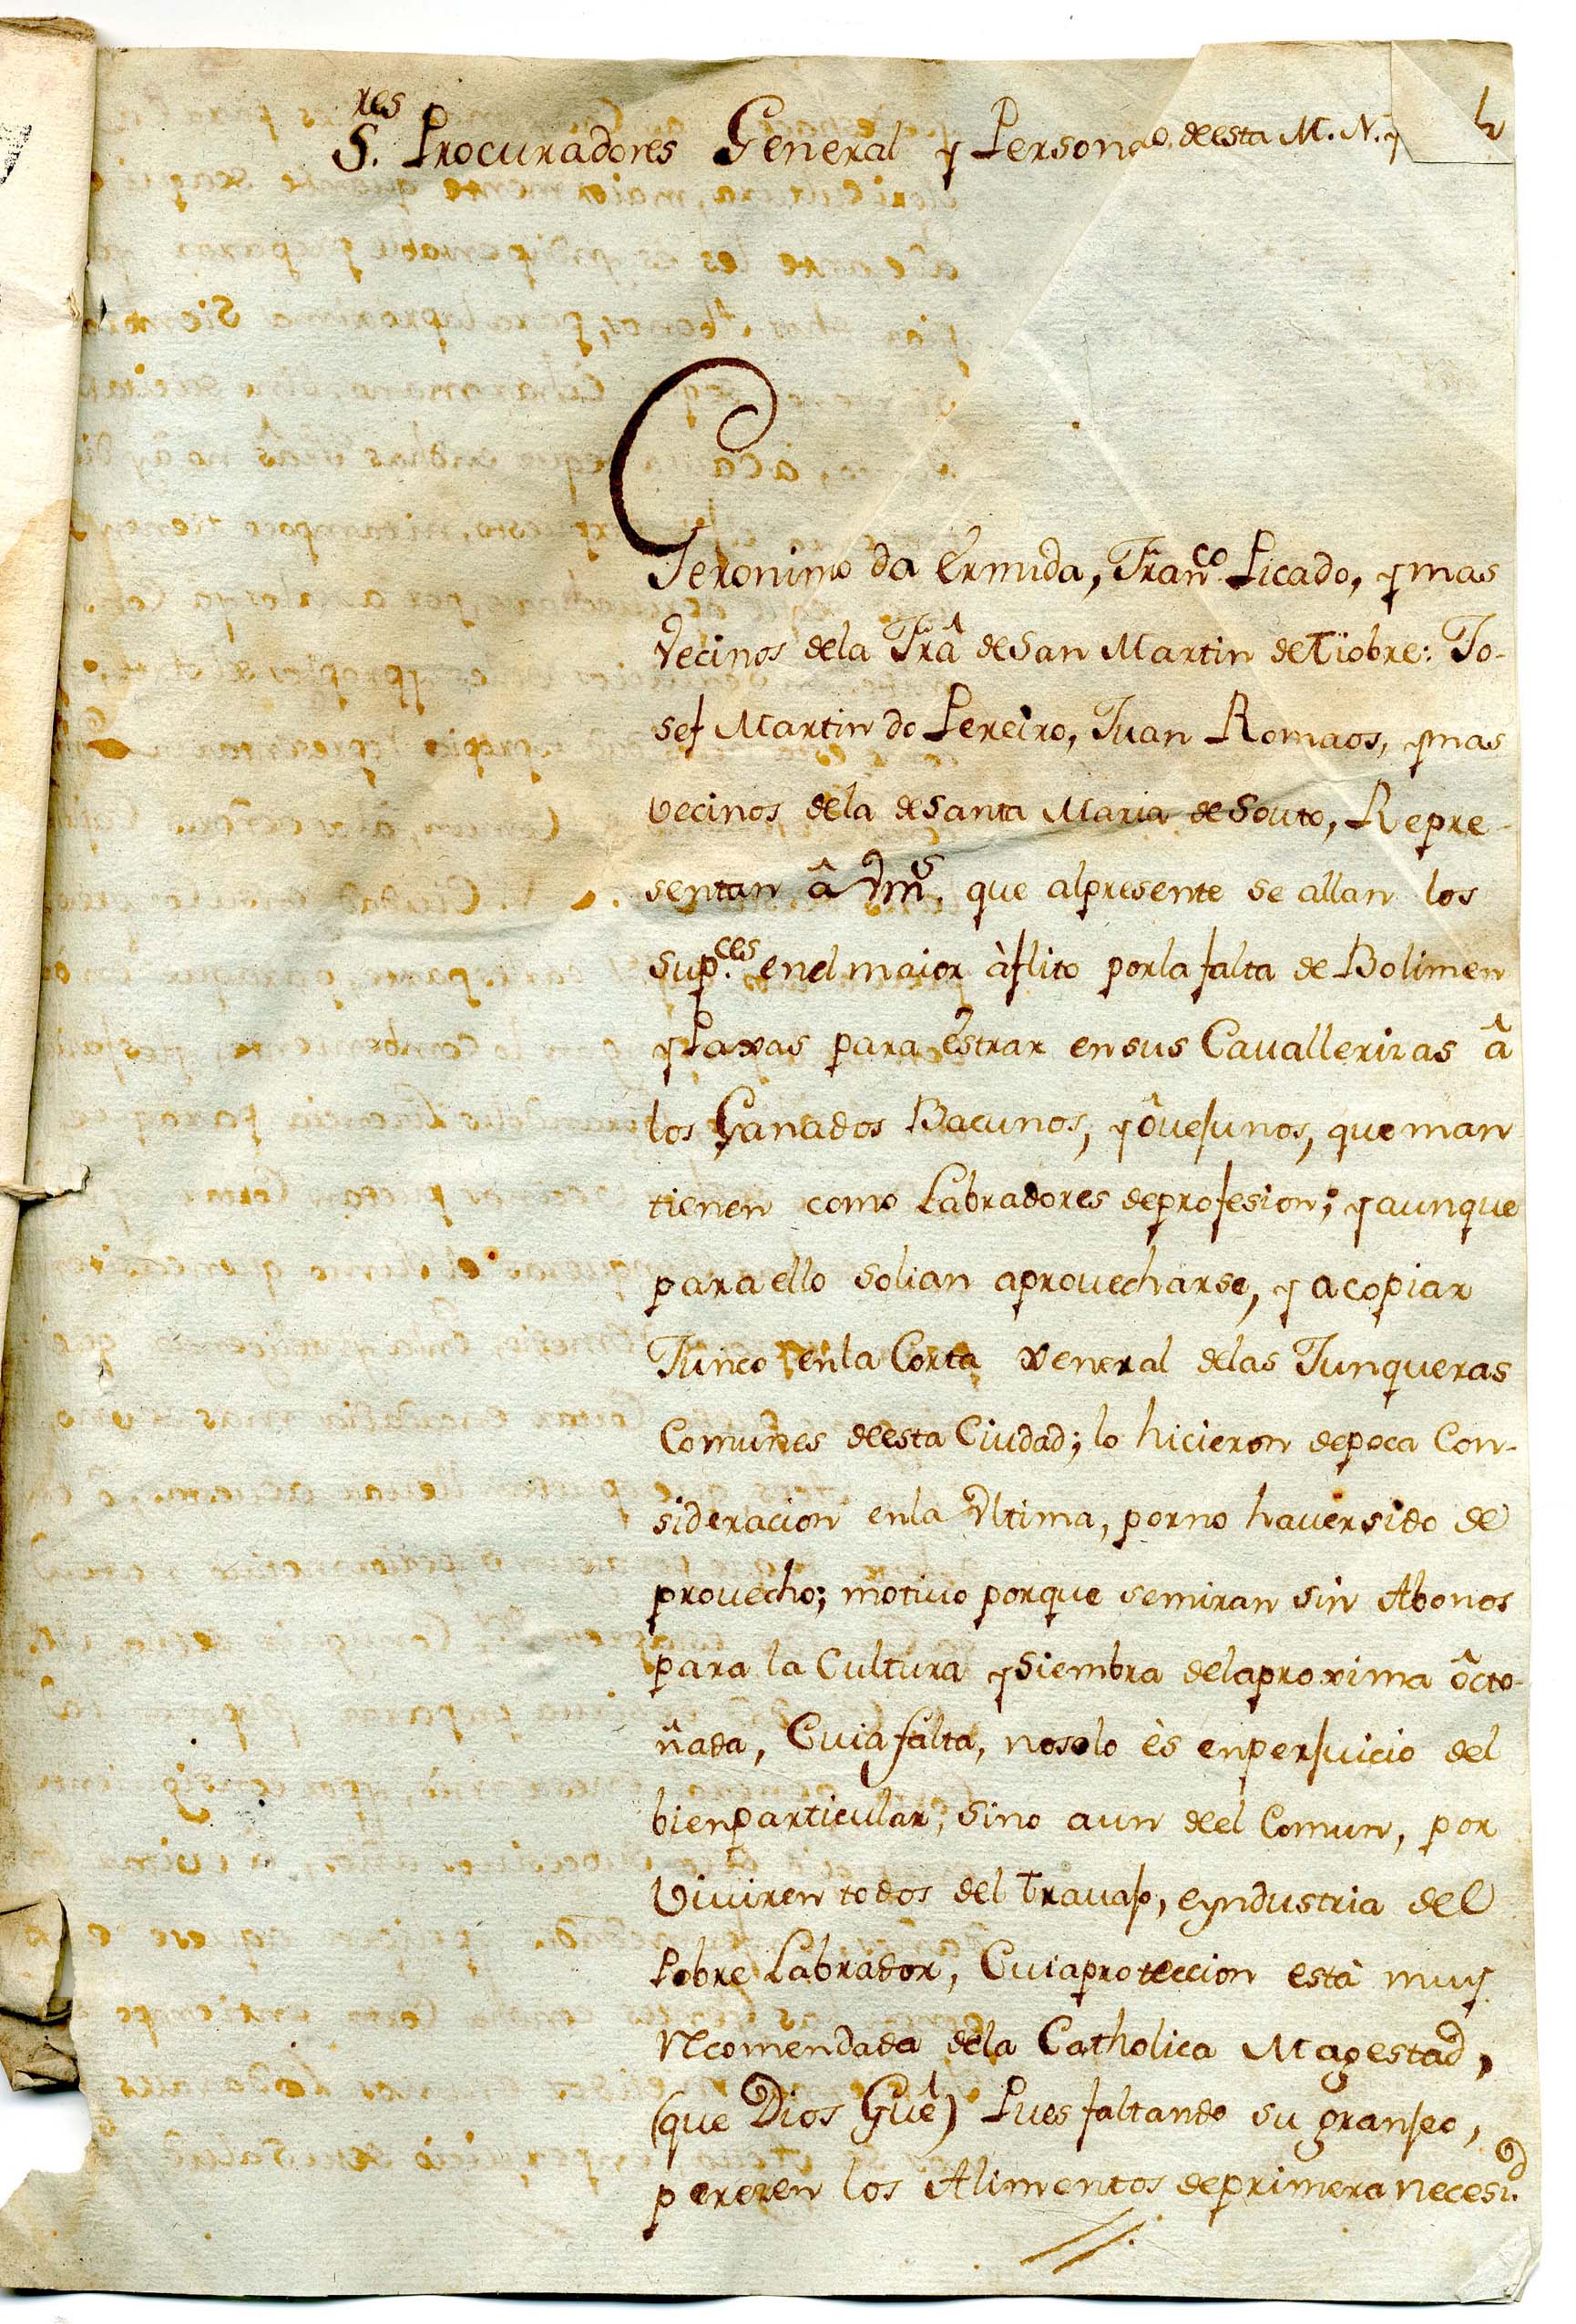 S.res Procuradores General y Persono. deesta M. N. y
Jeronimo da Ermida, Franco. Picado, y mas
Vecinos dela Fra de San Martin de Tiobre: Jo-
sef Martin do Pereiro, Juan Romaos, y mas
vecinos dela de Santa Maria de Souto, Repre-
sentan â Vms. que alpresente se allan los
Sup.ces en el maior àflito porla falta de Bolimen
y Paxas para Estrar en sus Cavallerizas â
los Ganados Bacunos, y ôvejunos, que man
tienen como Labradores de profesion; y aunque
para ello solian aprovecharse, y acopiar
Junco en la Corta xeneral delas Junqueras
Comunes deesta Ciudad; lo hicieron de poca Con-
sideracion enla Vltima, porno haver sido de
provecho; motivo porque semiran sin Abonos
para la Cultura y Siembra delaproxima ôcto-
ñada, Cuia falta, nosolo ès enperjuicio del
bien particular, sino aun deel Comun, por
Viviren todos del Travajo, eyndustria del
Pobre Labrador, Cuiaproteccion està muy
Recomendada dela Catholica Magestad,
(que Dios Gue) Pues faltando su granjeo,
perezen los Alimentos deprimera necesi.d